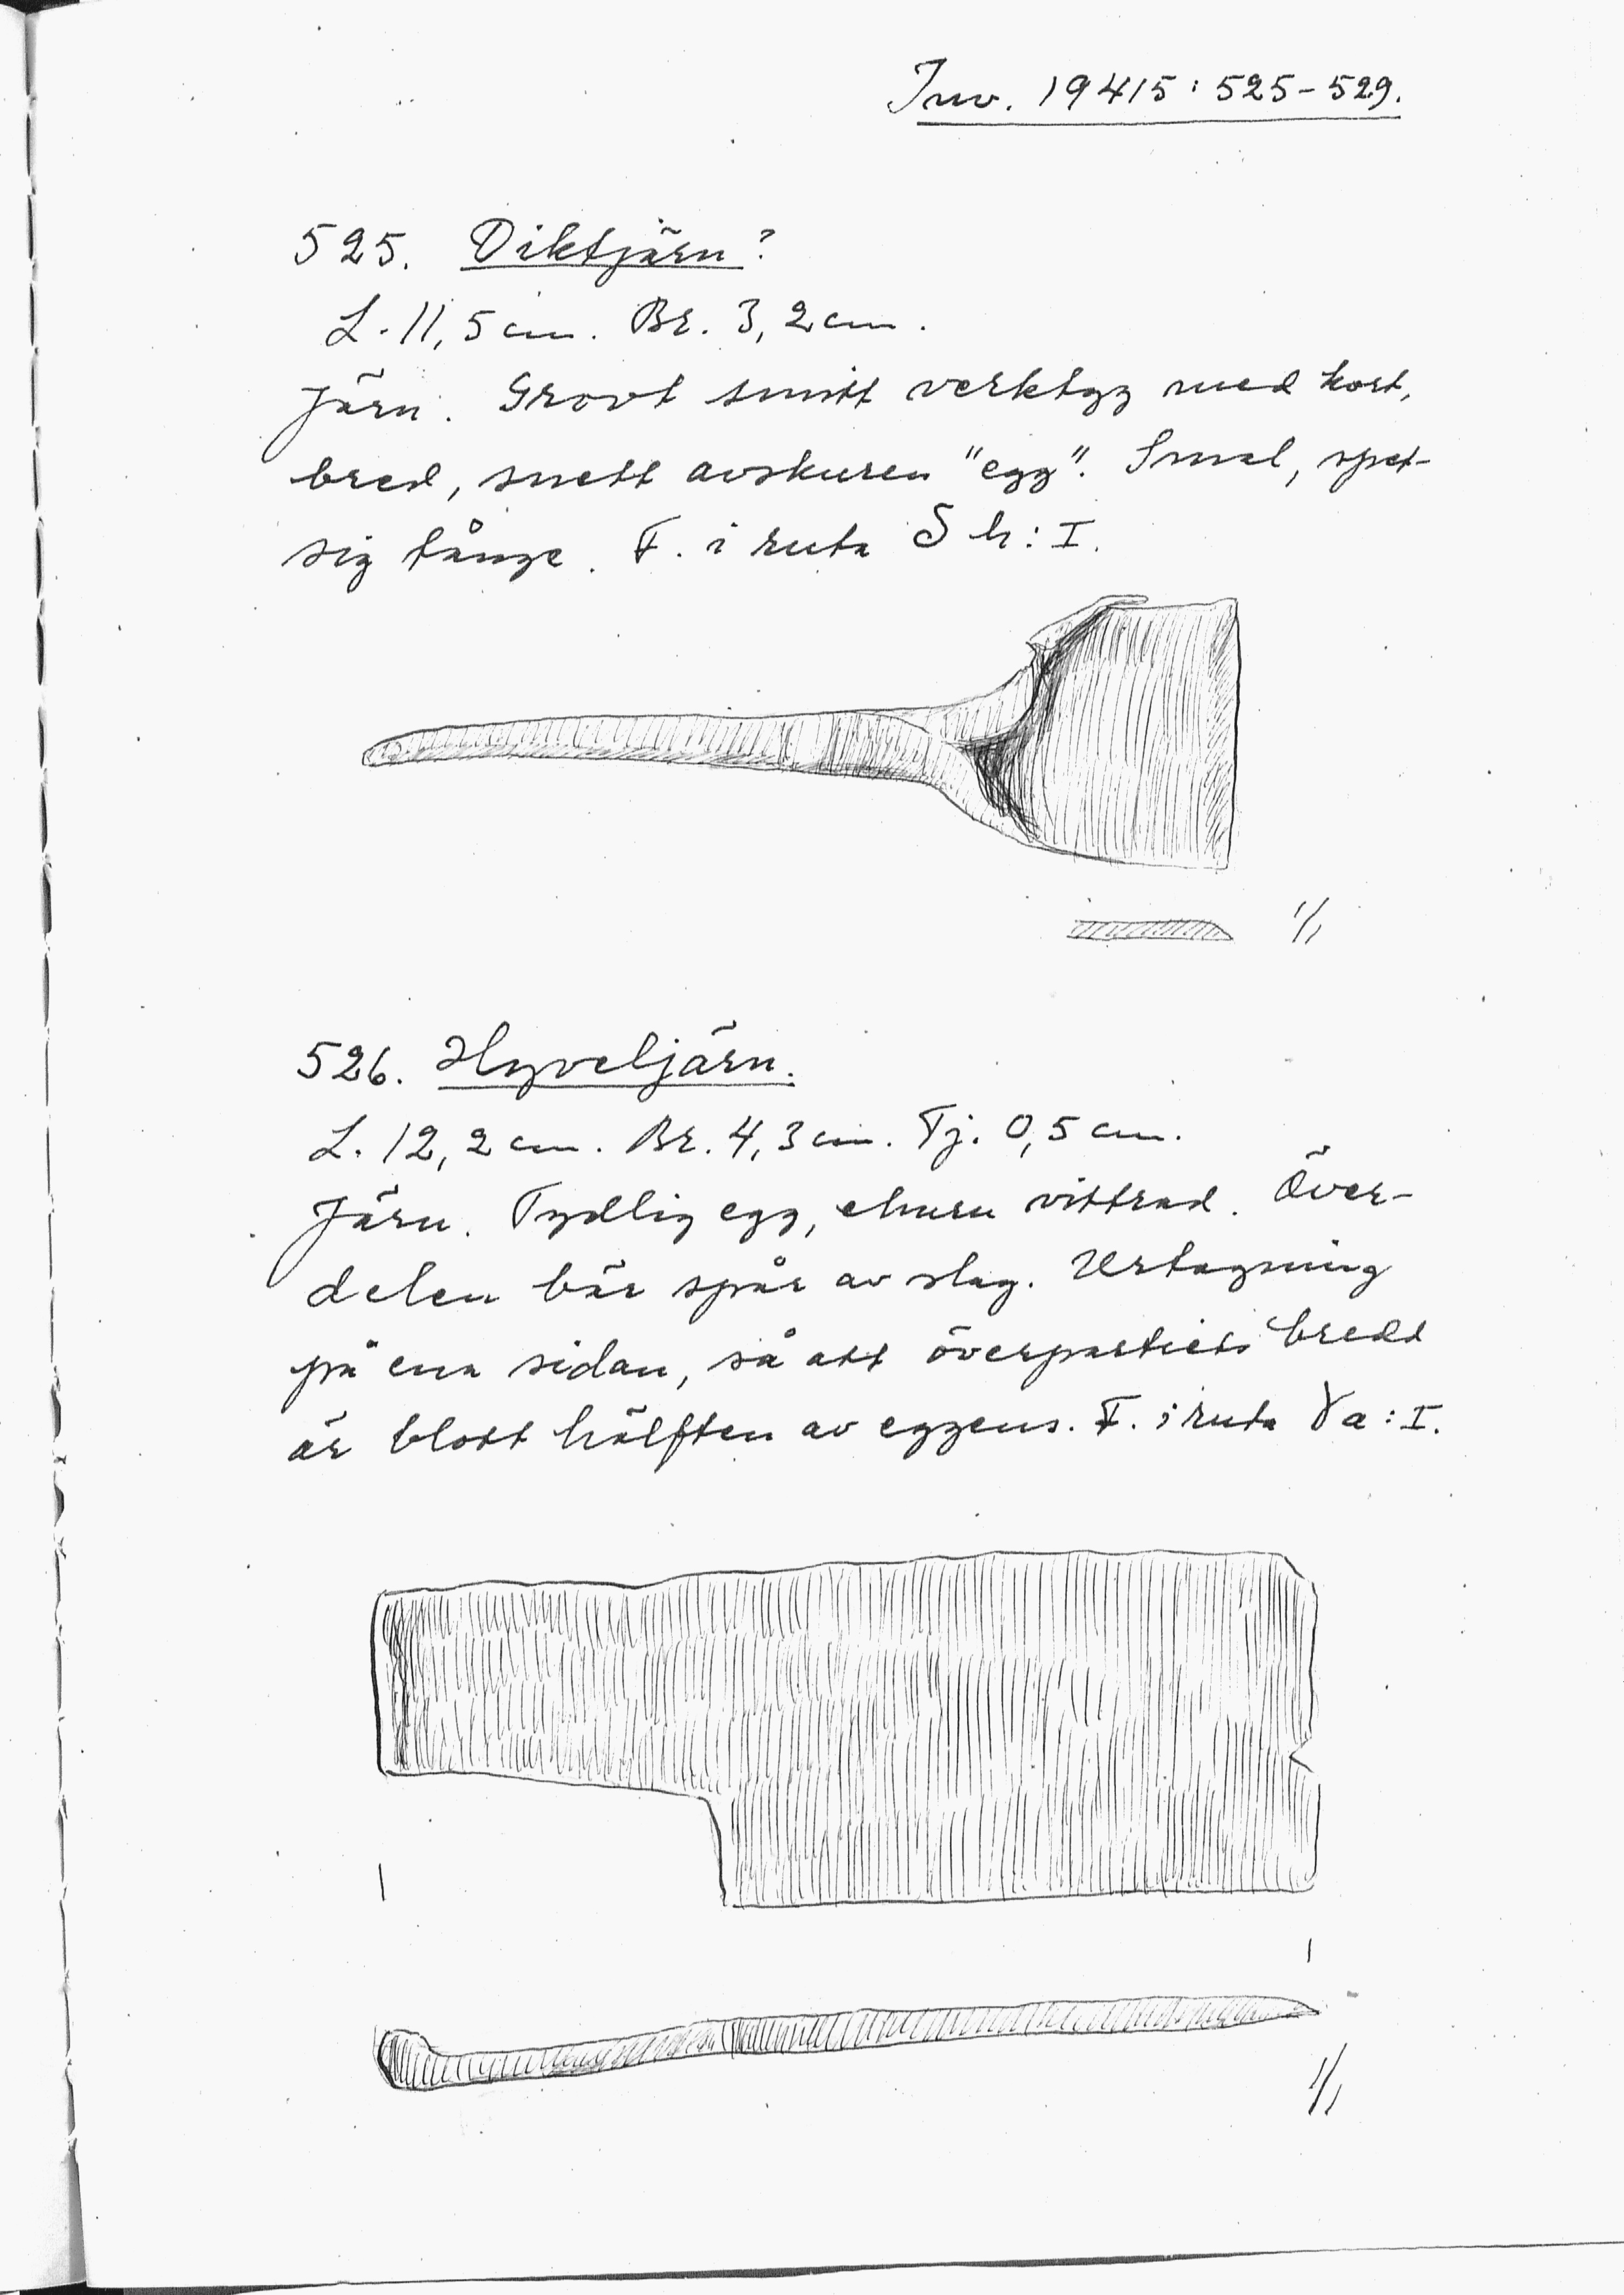 Inv. 19415:525-529.
525. Diktjärn?
L. 11,5 cm. Br. 3,2 cm.
Järn. Grovt smitt verktyg med kort,
bred, snett avskuren "egg". Smal, spet-
sig tånge. F. i ruta S h: I.
1/1
526. Hyveljärn.
L. 12,2 cm. Br. 4,3 cm. Tj. 0,5 cm.
Järn. Tydlig egg, ehuru vittrad. Över-
delen bär spår av slag. Urtagning
på ena sidan, så att överpartiets bredd
är blott hälften av eggens. F. i ruta a: I.
1/1